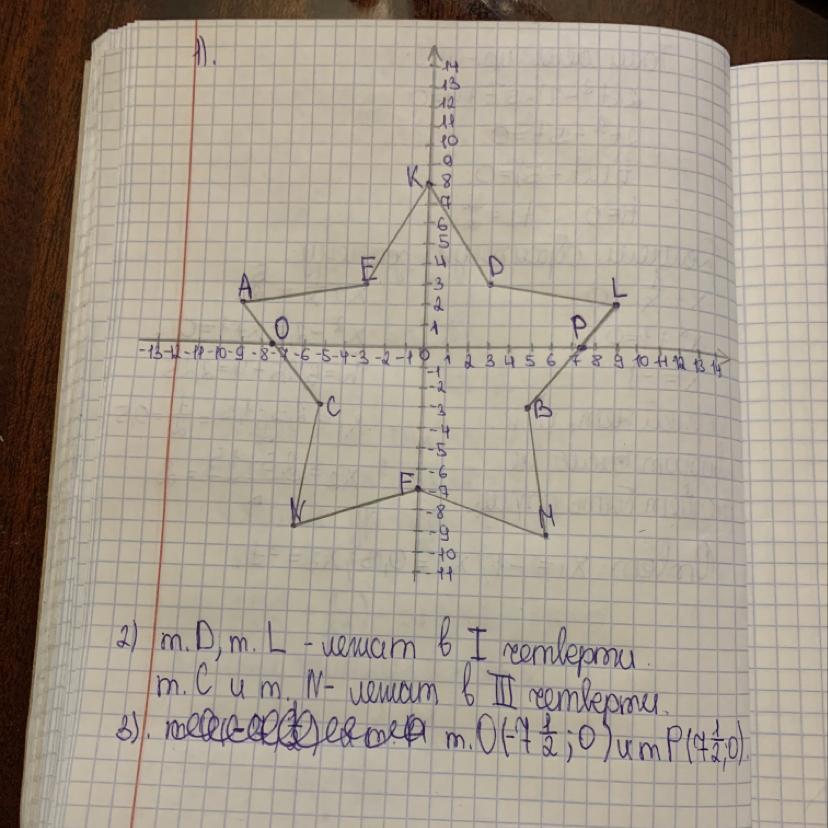 1).
14
13
12
11
10
9
K 8
7
6
5
E 4 D
A 3 L
2
O 1 P
-13 -12 -11 -10 -9 -8 -7 -6 -5 -4 -3 -2 -1 0 1 2 3 4 5 6 7 8 9 10 11 12 13 14
-1
-2
C -3 B
-4
-5
-6
F -7
N -8 M
-9
-10
-11
2) т. D, т. L - лежат в I четверти.
т. C и т. N - лежат в III четверти.
3). т. O(-7 1/2; 0) и т P(7 1/2; 0).